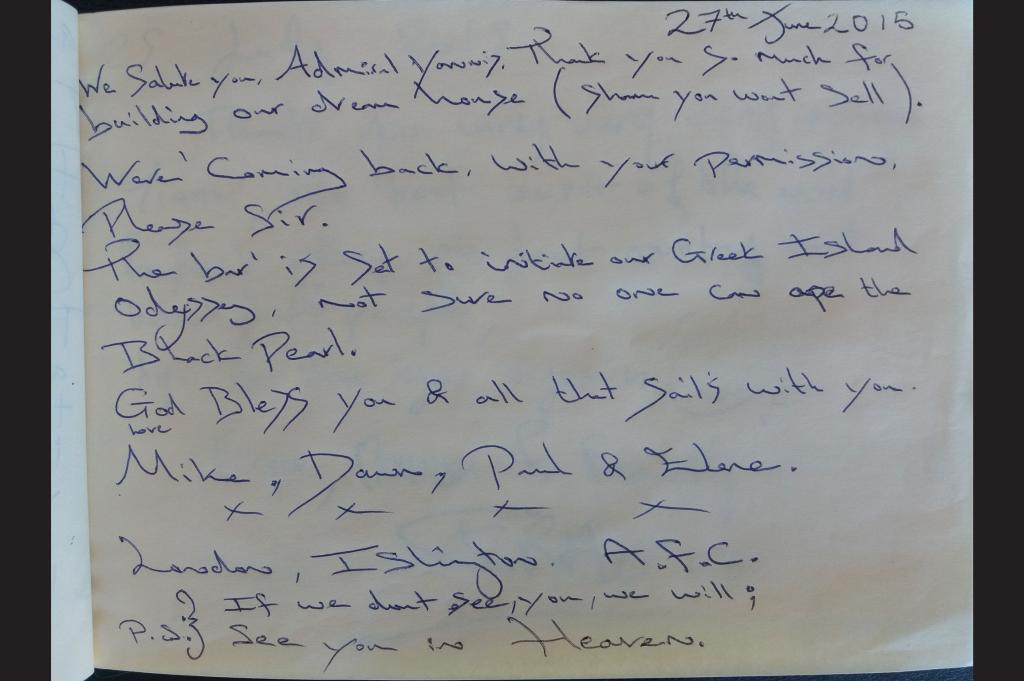 27th June 2015
We Salute you, Admiral Yannis, Thank you so much for
building our dream house (Shame you wont Sell).
Were' Coming back, with your Permission,
Please Sir.
The bar' is set to initiate our Greek Island
Odyssey, not sure no one can ope the
Black Pearl.
God Bless you & all that Sail's with you.
love
Mike, Dawn, Paul & Elene.
x x x x
London, Islington. A.F.C.
If we dont see, you, we will;
P.S. See you in Heaven.